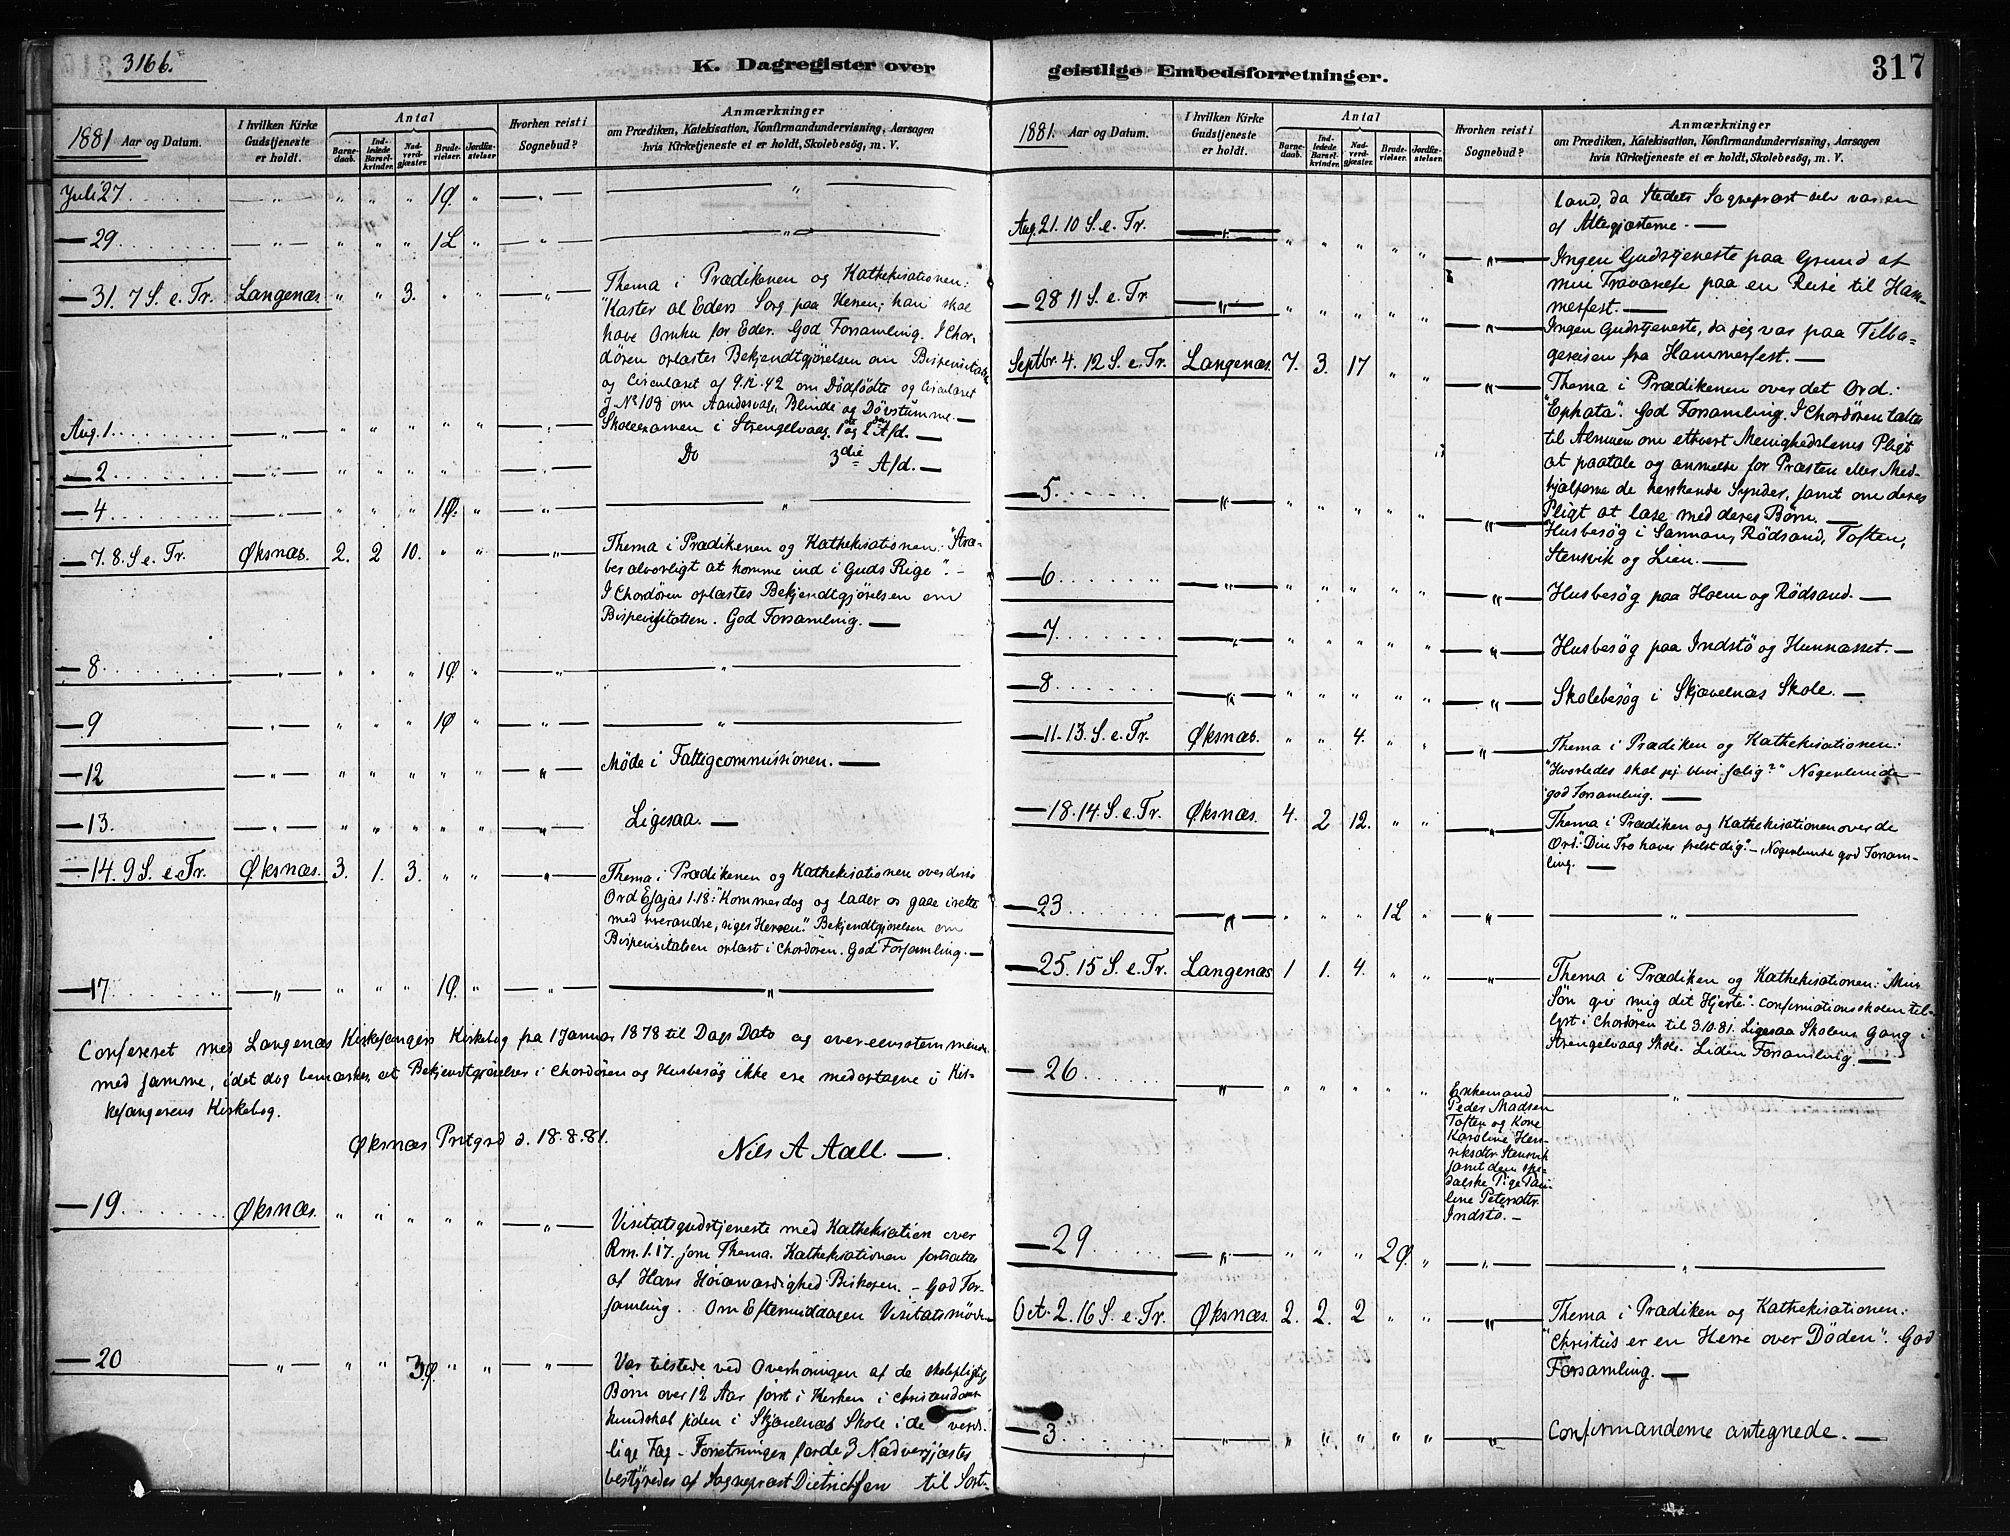 3166.
K. Dagregister over
1881 Aar og Datum.
I hvilken Kirke Gudstjeneste er holdt.
Antal
Barnedaab.
Indledede Barselkvinder.
Nadverdgjæster.
Brudevielser.
Jordfæstelser
Hvorhen reist i Sognebud?
Anmærkninger
om Prædiken, Katekisation, Konfirmandundervisning, Aarsagen
hvis Kirketjeneste ei er holdt, Skolebesøg, m. V.
Juli 27 — " — " " " 1Ø. " — " — — " —
— 29 — " — " " " 1L " — " — — " —
— 31. 7 S. e. Tr. Langenæs " " 3. " " — " — Thema i Prædikenen og Kathekisationen:
"Kaster al Eders Sorg paa Herren; han skal
have Omhu for Eder. God Forsamling. I Chor-
døren oplæstes Bekjendtgjørelsen om Bispevisitats
og Circulæret af 9.12.42 om Dødfødte og Circulæret
J. No 108 om Aandssvage, Blinde og Døvstumme. —
Aug. 1. — " — " " " " " — " — Skoleexamen i Strengelvaag. 1ste og 2den Afd. —
— 2 — " — " " " " " — " — Do 3die Afd. —
— 4 — " — " " " 1Ø. " — " — — " —
— 7. 8. S. e. Tr. Øksnæs. 2. 2 10. " " — " — Thema i Prædikenen og Kathekisationen: "Stræ-
ber alvorligt at komme ind i Guds Rige". —
I Chordøren oplæstes Bekjendtgjørelsen om
Bispevisitatsen. God Forsamling. —
— 8 — " — " " " 1Ø " — " — — " —
— 9 — " — " " " 1Ø " — " — — " —
— 12 — " — " " " " " — " — Møde i Fattigcommissionen. —
— 13. — " — " " " " " — " — Ligesaa. —
— 14. 9 S. e. Tr. Øksnæs. 3. 1. 3. " " — " — Thema i Prædikenen og Kathekisationen over deris
Ord Esajas 1.18: "Kommer dog og lader os gaae irette
med hverandre, siger Herren." Bekjendtgjørelsen om
Bispevisitatsen oplæst i Chordøren. God Forsamling. —
— 17 — " — " " " 1Ø. " — " — — " —
Confereret med Langenæs Kirkesangers Kirkebog fra 1 Januar 1878 til Dags Dato og overeensstemmende
med samme, idet dog bemærkes, at Bekjendtgjørelser i Chordøren og Husbesøg ikke ere medoptagne i Kir-
kesangerens Kirkebog.
Øksnæs Prstgrd d. 18.8.81. Nils A Aall. —
— 19 Øksnæs. " " " " " — " — Visitatsgudstjeneste med Kathekisation over
Rm. 1.17. som Thema. Kathekisationen fortsattes
af Hans Høiærværdighed Biskopen. — God For-
samling. Om Eftermiddagen Visitatsmøde
— 20 — " — " " 3Ø. " " — " — Var tilstede ved Overhøringen af de skolepligtige
Børn over 12 Aar først i Kirken i Christendoms
kundskab siden i Skjærelnæs Skole i de verds-
lige Fag — Forretningen for de 3 Nadvergjæster
bestyredes af Sognepræst Dietrichsen til Sort-
geistlige Embedsforretninger.
317
1881. Aar og Datum.
I hvilken Kirke Gudstjeneste er holdt.
Antal
Barnedaab.
Indledede Barselkvinder.
Nadverdgjæster.
Brudevielser.
Jordfæstelser.
Hvorhen reist i Sognebud?
Anmærkninger
om Prædiken, Katekisation, Konfirmandundervisning, Aarsagen
hvis Kirketjeneste ei er holdt, Skolebesøg, m. V.
land, da Stedets Sognepræst selv var en
af Altergjæsterne. —
Aug. 21. 10 S. e. Tr. — " — " " " " " — " — Ingen Gudstjeneste paa Grund af
min Fraværelse paa en Reise til Ham-
merfest. —
— 28 11 S. e. Tr — " — " " " " " — " — Ingen Gudstjeneste, da jeg var paa Tilba-
gereisen fra Hammerfest. —
Septbr. 4. 12 S. e. Tr. Langenæs. 7. 3. 17 " " — " — Thema i Prædikenen over det Ord:
"Ephata". God Forsamling. I Chordøren taltes
til Almuen om ethvert Menighedslems Pligt
at paatale og anmelde for Præsten eller Med-
hjælperne de herskende Synder, samt om deres
Pligt at læse med deres Børn. —
— 5. — " — " " " " " — " — Husbesøg i Sannan, Rødsand, Toften,
Stensvik og Lien. —
— 6 — " — " " " " " — " — Husbesøg paa Hoem og Rødsand. —
— 7 — " — " " " " " — " — Husbesøg paa Indstø og Hunnæsset. —
— 8 — " — " " " " " — " — Skolebesøg i Skjævelnæs Skole. —
— 11. 13. S. e. Tr. Øksnæs. " " 4. " " — " — Thema i Prædiken og Kathekisationen:
"Hvorledes skal jeg blive salig?" Nogenlunde
god Forsamling. —
— 18. 14. S. e. Tr. Øksnæs. 4. 2 12. " " — " — Thema i Prædiken og Kathekisationen over de
Ord: "Din Tro haver frelst dig." — Nogenlunde god Forsam-
ling. —
— 23 — " — " " " 1L " — " — — " —
— 25. 15 S. e. Tr. Langenæs 1 1. 4. " " — " — Thema i Prædiken og Kathekisationen: "Min
Søn giv mig dit Hjerte". Confirmationsskolen til-
lyst i Chordøren til 3.10.81. Ligesaa Skolens Gang i
Strengelvaag Skole. Liden Forsamling. —
— 26 — " — " " " " " Enkemand
Peder Madsen
Toften og Kone
Karoline Hen-
riksdtr. Stensvik
samt den spe-
dalske Pige Pau-
line Petersdtr.
Indstø. — — " —
— 29 — " — " " " 2Ø. " — " — — " —
Oct. 2. 16 S. e. Tr. Øksnæs. 2. 2. 2 " " — " — Thema i Prædiken og Kathekisationen:
"Christus er en Herre over Døden". God
Forsamling. —
— 3 — " — " " " " " — " — Confirmanderne antegnede. —